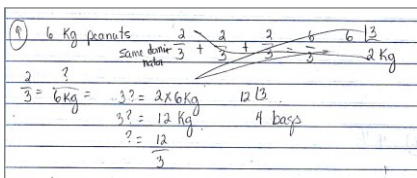 9 6 Kg peanuts 2/3 + 2/3 + 2/3 = 6/3 6 |3
same domi- nator 2 Kg
2/3 = ?/6Kg = 3? = 2x6Kg 12 |3
3? = 12 Kg 4 bags
? = 12/3